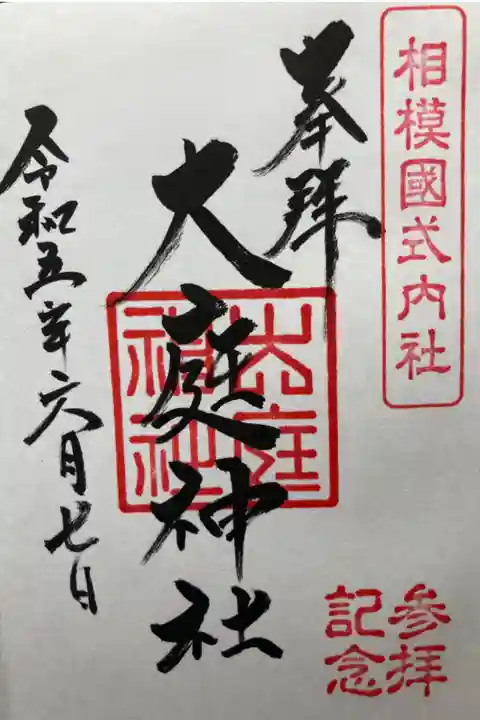 相模國式内社
奉拝
大庭神社
令和五年六月七日
参拝
記念